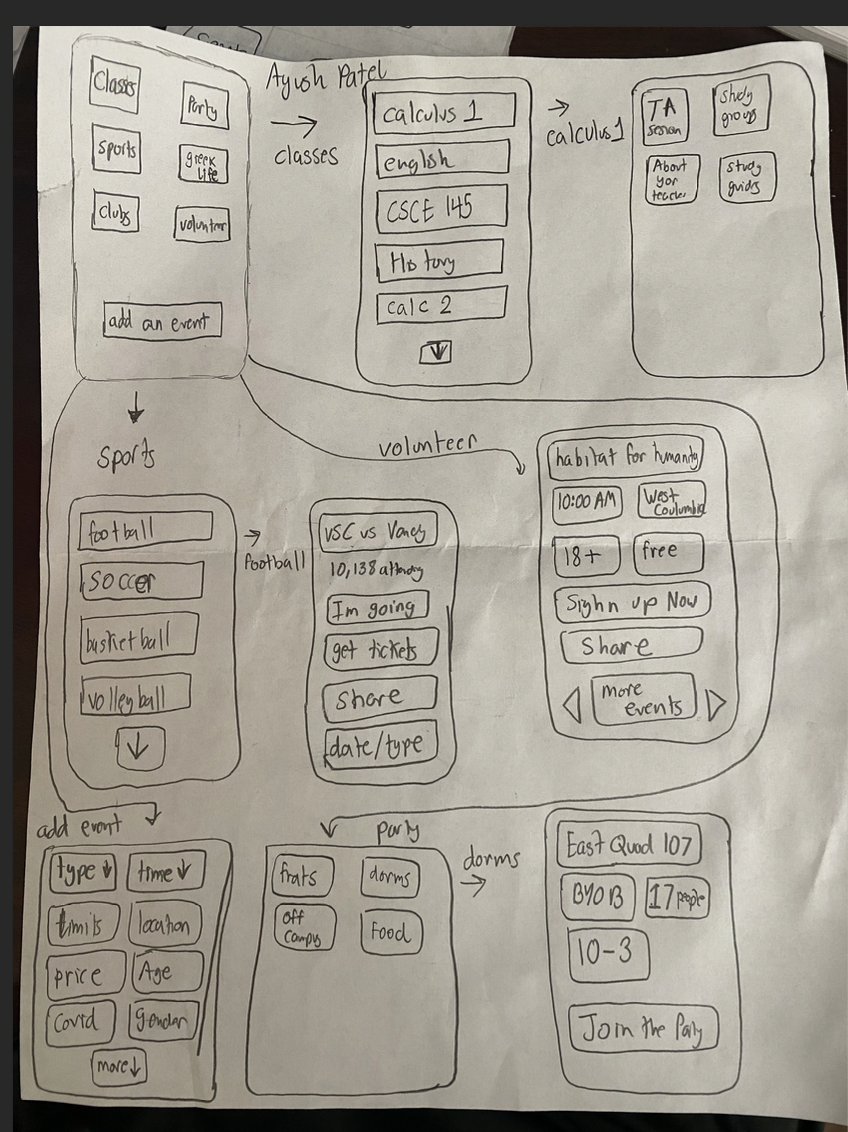 Ayush Patel
Classes
Party
sports
greek
Life
clubs
volunteer
add an event
classes
calculus 1
english
CSCE 145
History
calc 2
calculus 1
TA
session
study
groups
About
yor
teacher
study
guides
sports
football
soccer
basketball
volleyball
football
VSC vs Vandy
10,138 attending
Im going
get tickets
share
date/type
volunteer
habitat for humanity
10:00 AM
West
Coulumbia
18+
free
Sighn up Now
Share
more
events
add event
type
time
limits
location
price
Age
Covid
Gender
more
party
frats
dorms
off
campus
Food
dorms
East Quad 107
BYOB
17 people
10-3
Join the Party